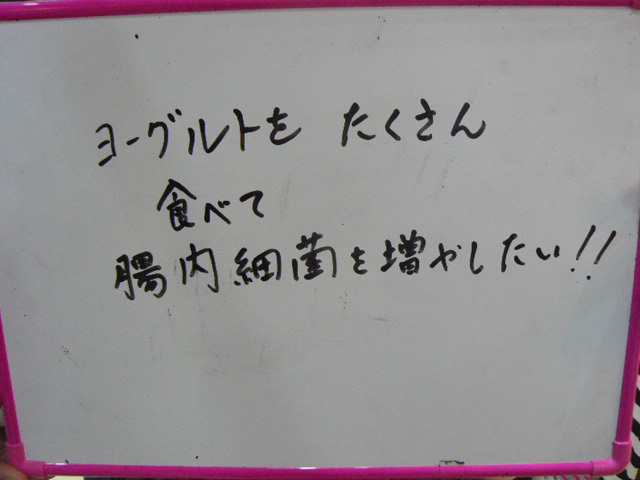 ヨーグルトを たくさん
食べて
腸内細菌を増やしたい!!